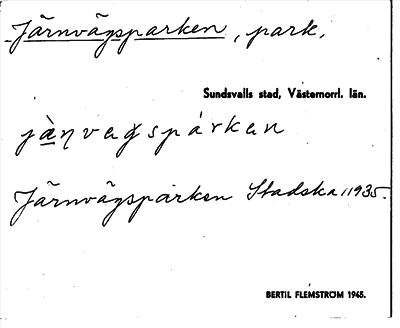 Järnvägsparken, park.
Sundsvalls stad, Västernorrl. län.
jä̀ɳvagspárkan
Järnvägsparken Stadska 1935.
BERTIL FLEMSTRÖM 1945.